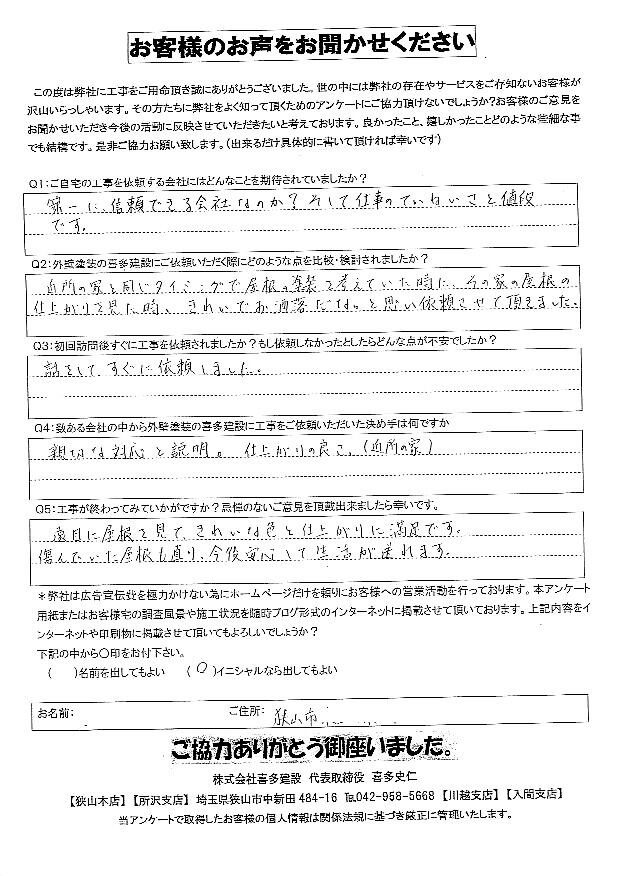 お客様のお声をお聞かせください
この度は弊社に工事をご用命頂き誠にありがとうございました。世の中には弊社の存在やサービスをご存知ないお客様が
沢山いらっしゃいます。その方たちに弊社をよく知って頂くためのアンケートにご協力頂けないでしょうか?お客様のご意見を
お聞かせいただき今後の活動に反映させていただきたいと考えております。良かったこと、嬉しかったことどのような些細な事
でも結構です。是非ご協力お願い致します。(出来るだけ具体的に書いて頂ければ幸いです)
Q1:ご自宅の工事を依頼する会社にはどんなことを期待されていましたか?
第一に、信頼できる会社なのか?そして仕事のていねいさと値段
です。
Q2:外壁塗装の喜多建設にご依頼いただく際にどのような点を比較・検討されましたか?
近所の家と同じタイミングで屋根の塗装を考えていた時に、その家の屋根の
仕上がりを見た時、きれいでお洒落だな。と思い依頼させて頂きました。
Q3:初回訪問後すぐに工事を依頼されましたか?もし依頼しなかったとしたらどんな点が不安でしたか?
話をしてすぐに依頼しました。
Q4:数ある会社の中から外壁塗装の喜多建設に工事をご依頼いただいた決め手は何ですか
親切な対応と説明。仕上がりの良さ。(近所の家)
Q5:工事が終わってみていかがですか?忌憚のないご意見を頂戴出来ましたら幸いです。
遠目に屋根を見てきれいな色と仕上がりに満足です。
傷んでいた屋根も直り、今後安心して生活が送れます。
*弊社は広告宣伝費を極力かけない為にホームページだけを頼りにお客様への営業活動を行っております。本アンケート
用紙またはお客様宅の調査風景や施工状況を随時ブログ形式のインターネットに掲載させて頂いております。上記内容をイ
ンターネットや印刷物に掲載させて頂いてもよろしいでしょうか?
下記の中から○印をお付下さい。
( )名前を出してもよい (○)イニシャルなら出してもよい
お名前: ご住所: 狭山市
ご協力ありがとう御座いました。
株式会社喜多建設 代表取締役 喜多史仁
【狭山本店】【所沢支店】 埼玉県狭山市中新田484-16 ℡042-958-5668 【川越支店】【入間支店】
当アンケートで取得したお客様の個人情報は関係法規に基づき厳正に管理いたします。